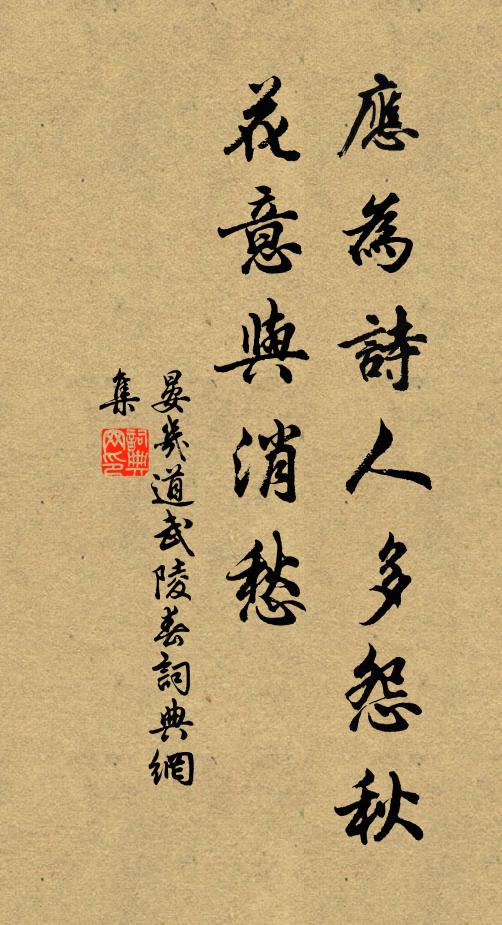 應為詩人多怨秋
花意與消愁
晏幾道武陵春詞典網
集
詞典
网印